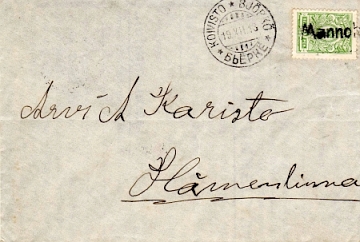 KOIVISTO * BJÖRKÖ * БЬЕРКЕ *
Manno
Arvi A Karisto
Hämenlinna